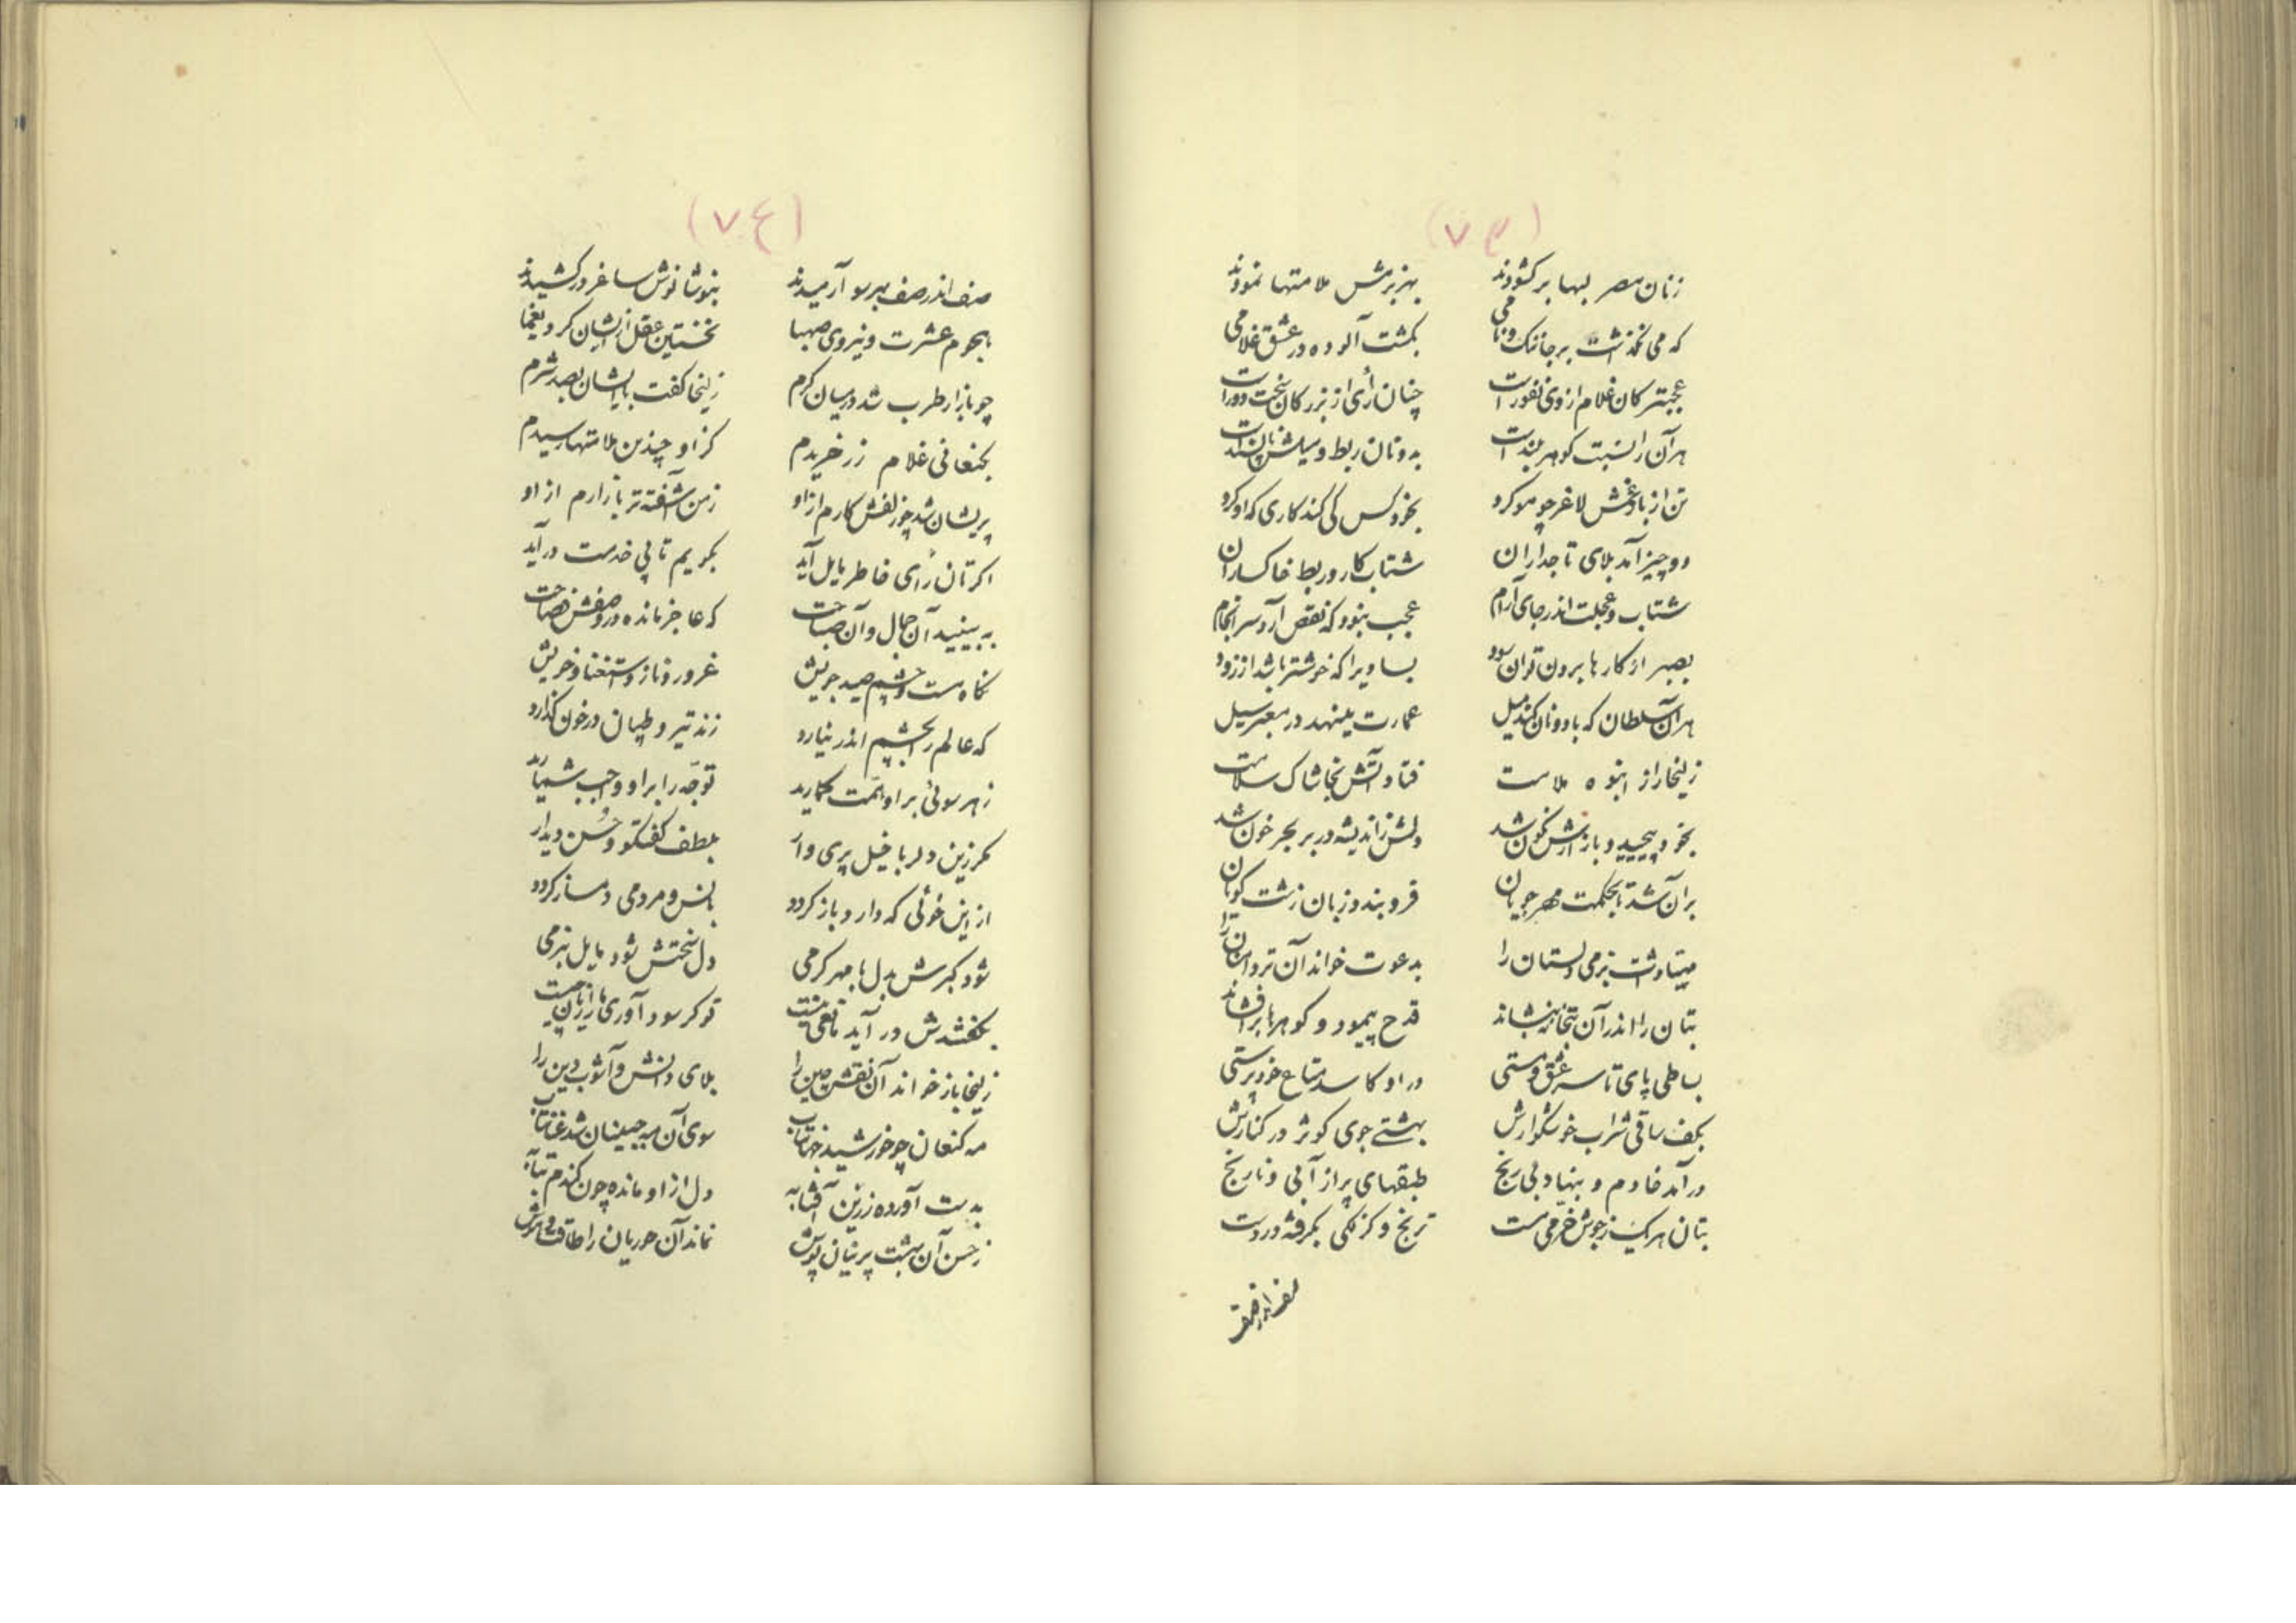 (۷۳)
زنان مصر لبها برکشودند بهر بزمش ملامتها نمودند
که می نگذشت بر جا ننک و نامی بکشت آلوده در عشق غلامی
عجبتر کان غلام از وی نفورست چنان رأی از بزرکان سخت دورست
هر آن را نسبت کوهر بلندست به دونان ربط و میلش ناپسندست
تن از باد غمش لاغر چو مو کرد بخود کس کی کند کاری که او کرد
دو چیز آمد بلای تاجداران شتاب کار و ربط خاکساران
شتاب و عجلت اندر جای آرام عجب نبود که نقص آرد سرانجام
بصبر از کارها بیرون توان بود بسا دیرا که خوشتر باشد از زود
هر آن سلطان که با دونان کند میل عمارت مینهد در معبر سیل
زلیخا را از انبوه ملامت فتاد آتش بخاشاک سلامت
بخود پیچید و بازارش نکون شد دلش ز اندیشه در بر بحر خون شد
بر آن شد تا بحکمت مهرجویان فرو بندد زبان زشت کویان
مهیا داشت بزمی دلستان را بدعوت خواند آن تردامنان را
بتان را اندر آن بتخانه بنشاند قدح پیمود و کوهرها برافشاند
بساطی پای تا سر عشق و مستی در او کاسد متاع خودپرستی
بکف ساقی شراب خوشکوارش بهشتی جوی کوثر در کنارش
درآمد خادم و بنهاد بی رنج طبقهای پر از آبی و نارنج
بتان هر یک ز جوش خرمی مست ترنج و کزلکی بکرفته در دست
صف اندر صف
(۷٤)
صف اندر صف بهر سو آرمیدند بنوشانوش ساغر درکشیدند
هجوم عشرت و نیروی صهبا نخستین عقل از ایشان کرد یغما
چو بازار طرب شد در میان کرم زلیخا کفت با ایشان بصد شرم
بکنعانی غلام زر خریدم کز او چندین ملامتها رسیدم
پریشان شد چو زلفش کارم از او ز من آشفته تر بازارم از او
اکرتان رأی خاطر مایل آید بکویم تا پی خدمت درآید
به بینید آن جمال و آن صباحت که عاجز مانده در وصفش فصاحت
نکاه مست و چشم صید جویش غرور و ناز و استغنا و خویش
که عالم را بچشم اندر نیارد زند تیر و طپان در خون کذارد
ز هر سوئی بر او همت کمارید توجّه را بر او واجب شمارید
مکر زین دلربا خیل پری وار بلطف کفتکو و حُسن دیدار
از این خوئی که دارد باز کردد بانس و مردمی دمساز کردد
شود کبرش بدل با مهر کرمی دل سختش شود مایل بنرمی
زلیخا باز خواند آن نقش چین را بلای دانش و آشوب دین را
مه کنعان چو خورشید جهانتاب سوی آن مه جبینان شد عنانتاب
بدست آورده زرین آفتابه دل از او مانده چون کندم بتابه
ز حسن آن بهشت پرنیان پوش نماند آن حوریان را طاقت و هوش